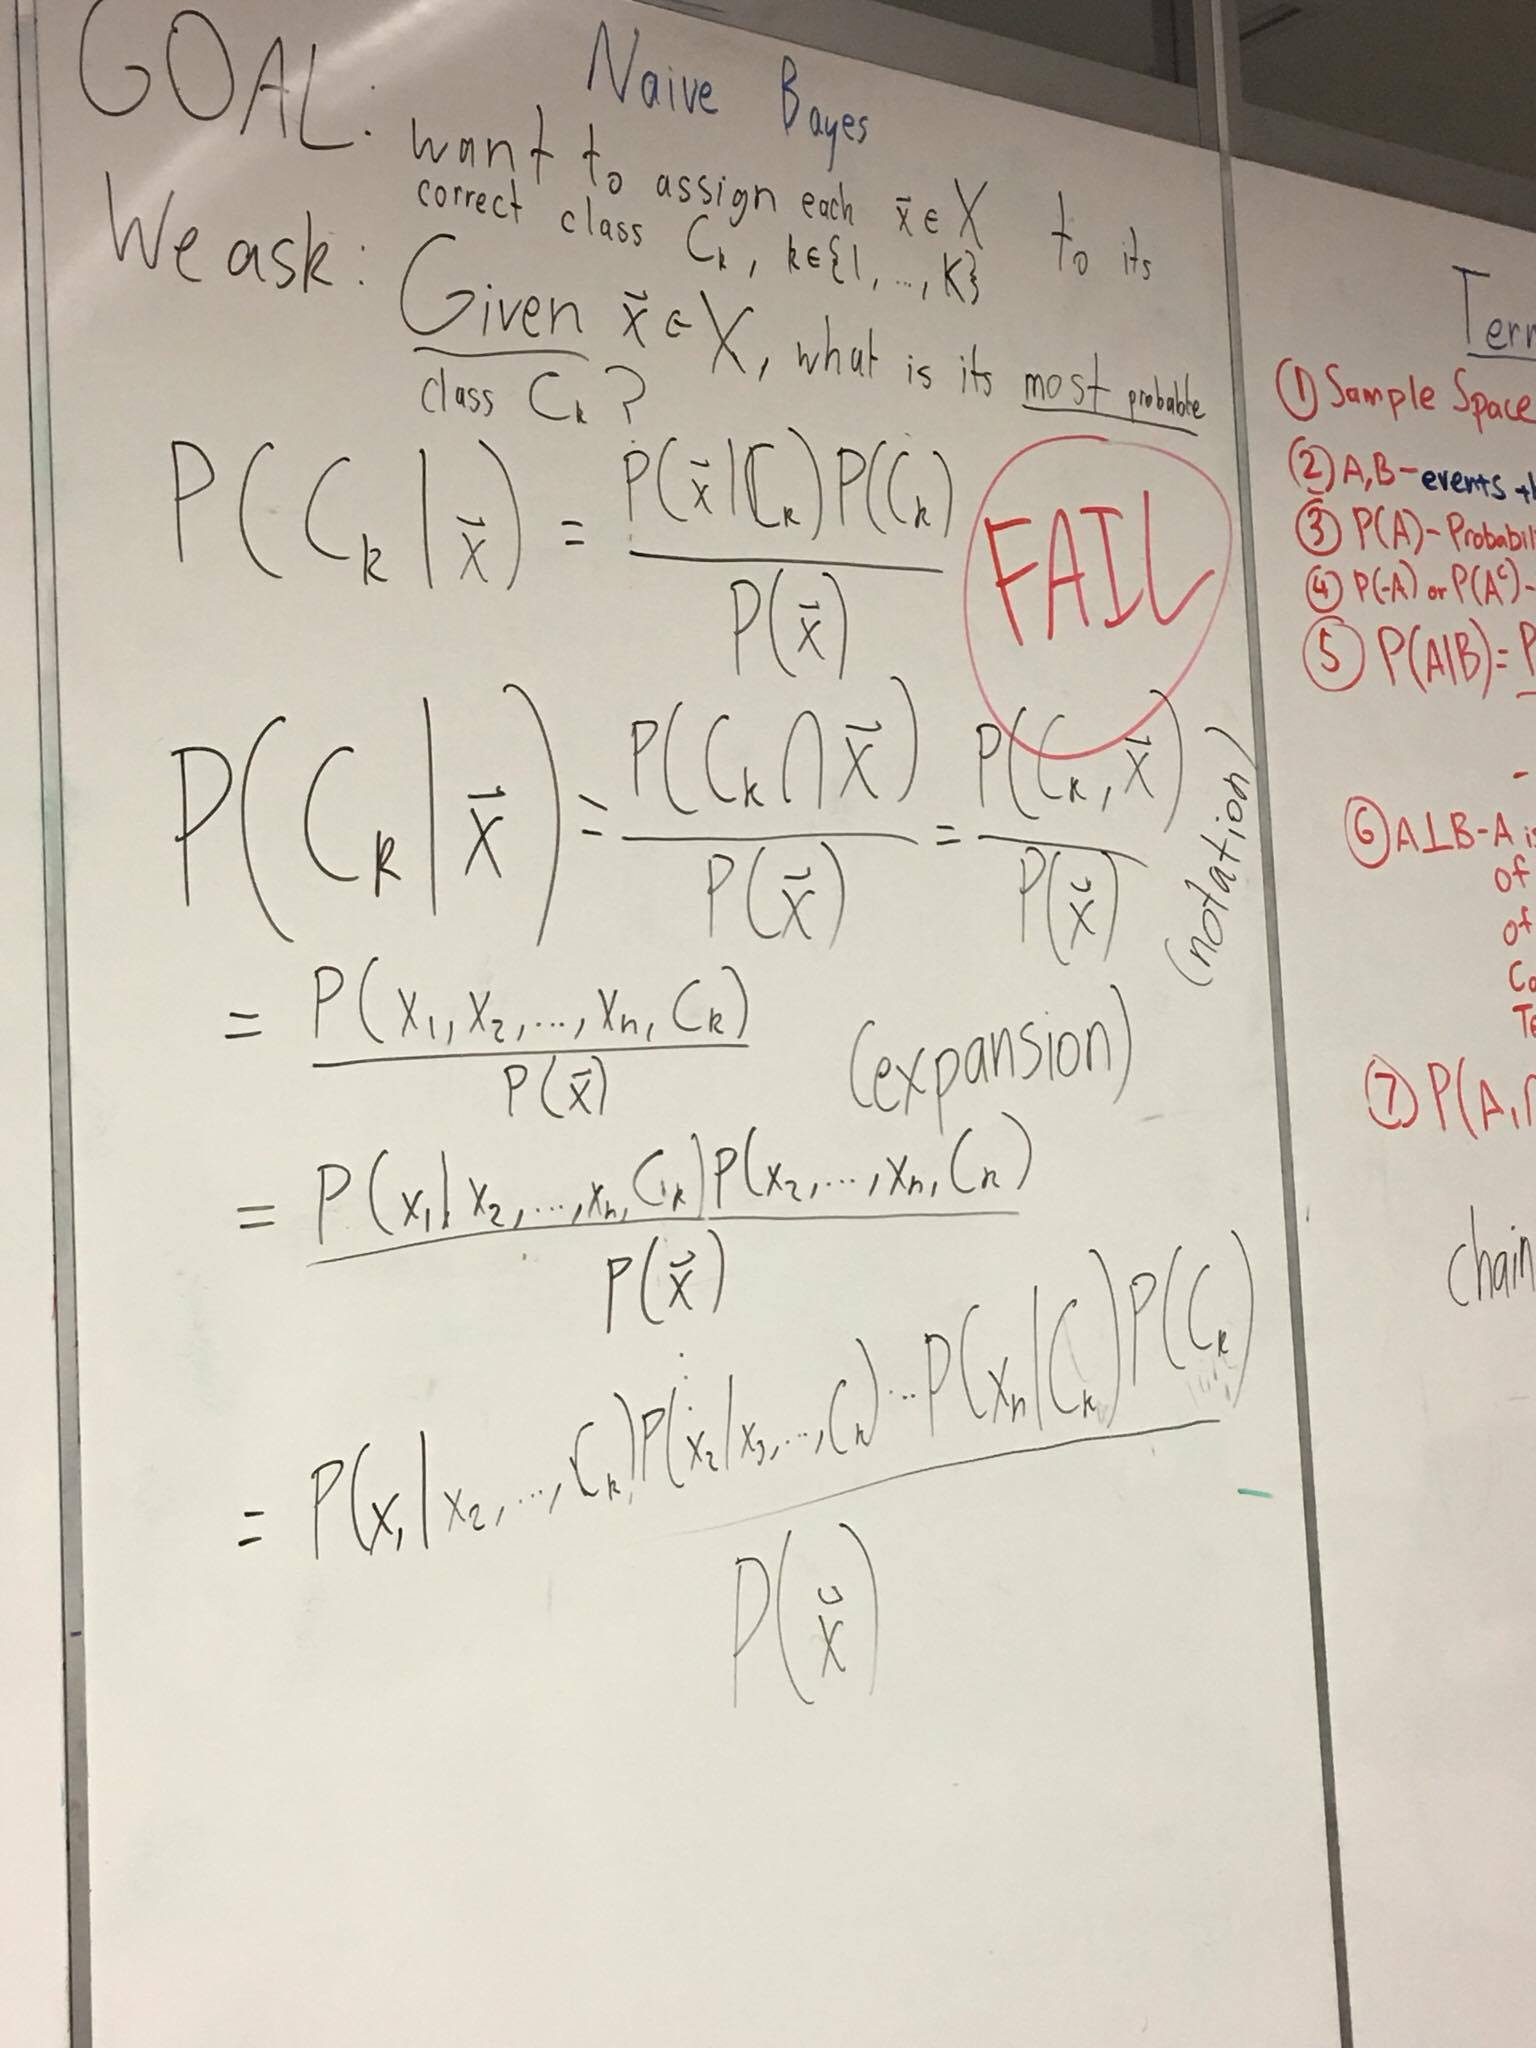 Naive Bayes
GOAL: want to assign each x⃗ ∈ X to its
correct class C_k, k∈{1, ..., K}
We ask: Given x⃗ ∈ X, what is its most probable
class C_k ?
P(C_k | x⃗) = P(x⃗ | C_k) P(C_k) / P(x⃗)
FAIL
P(C_k | x⃗) = P(C_k ∩ x⃗) / P(x⃗) = P(C_k, x⃗) / P(x⃗) (notation)
= P(x₁, x₂, ..., xₙ, C_k) / P(x⃗) (expansion)
= P(x₁ | x₂, ..., xₙ, C_k) P(x₂, ..., xₙ, C_k) / P(x⃗)
= P(x₁ | x₂, ..., C_k) P(x₂ | x₃, ..., C_k) ... P(xₙ | C_k) P(C_k) / P(x⃗)
① Sample Space
② A,B - events
③ P(A) -
④ P(¬A) or P(Aᶜ) -
⑤ P(A|B) =
⑥ A⊥B - A
of
of
⑦ P(A,
chain